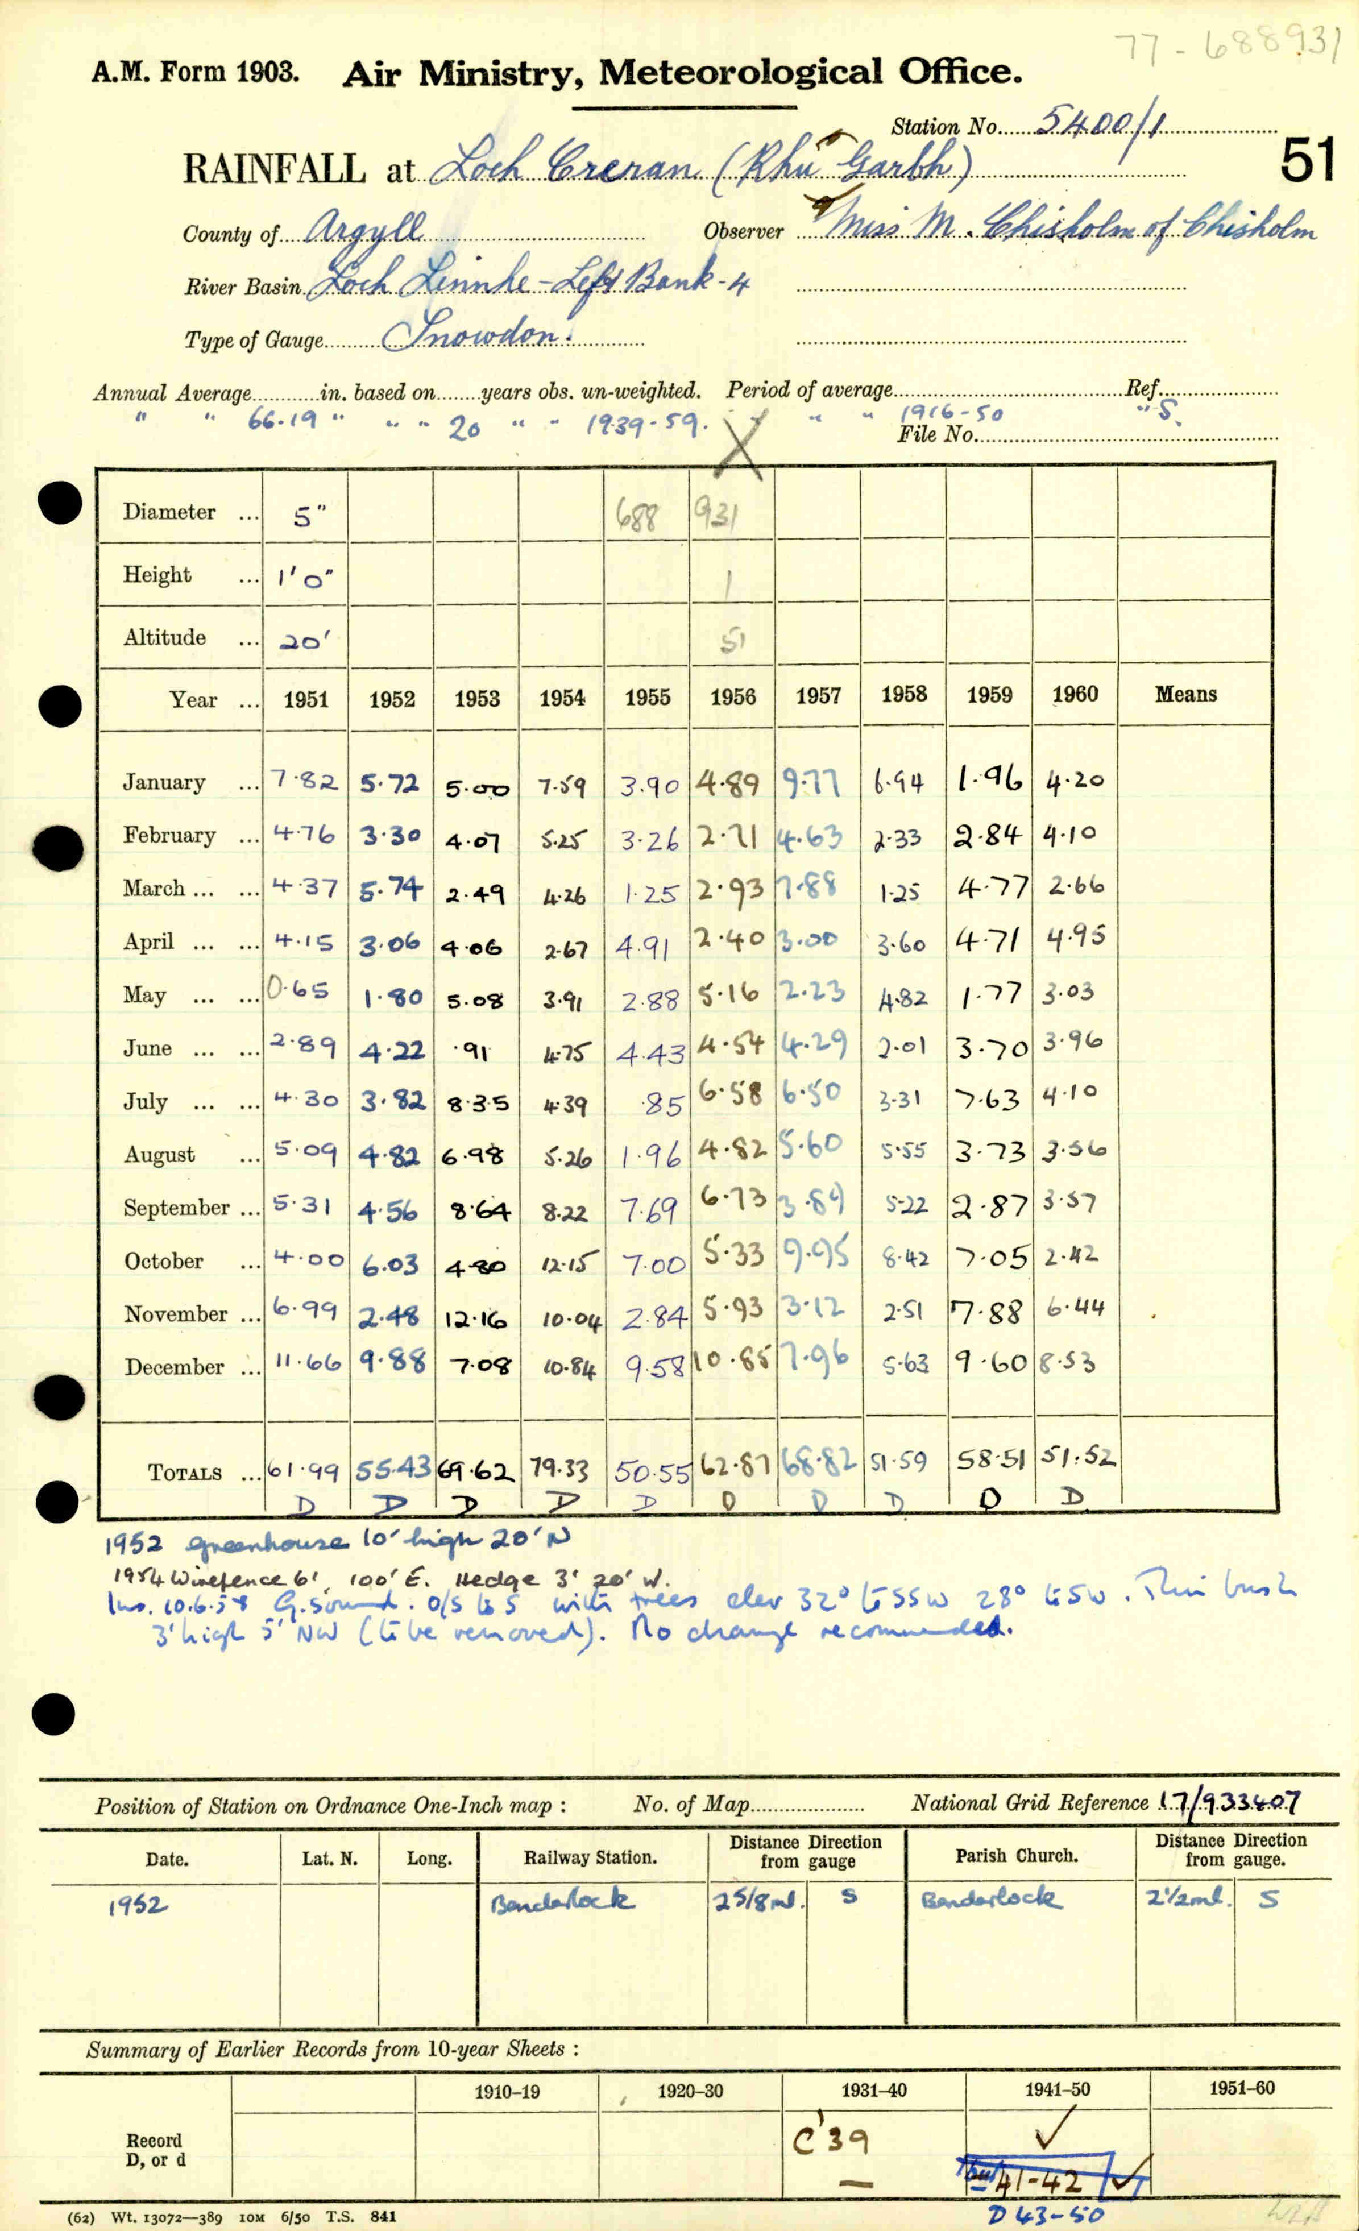 77-688931
A.M. Form 1903. Air Ministry, Meteorological Office.
Station No. 5400/1
51
RAINFALL at Loch Creran (Rhu Garbh)
County of Argyll Observer Miss M. Chisholm of Chisholm
River Basin Loch Linnhe - Left Bank - 4
Type of Gauge Snowdon.
Annual Average in. based on years obs. un-weighted. Period of average Ref.
" " 66.19 " " " 20 " " 1939-59. " " 1916-50 " S.
File No.
Diameter ... 5" 688 931
Height ... 1'0" 1
Altitude ... 20' 51
Year ... 1951 1952 1953 1954 1955 1956 1957 1958 1959 1960 Means
January ... 7.82 5.72 5.00 7.59 3.90 4.89 9.77 6.94 1.96 4.20
February ... 4.76 3.30 4.07 5.25 3.26 2.71 4.63 2.33 2.84 4.10
March ... ... 4.37 5.74 2.49 4.26 1.25 2.93 7.88 1.25 4.77 2.66
April ... ... 4.15 3.06 4.06 2.67 4.91 2.40 3.00 3.60 4.71 4.95
May ... ... 0.65 1.80 5.08 3.91 2.88 5.16 2.23 4.82 1.77 3.03
June ... ... 2.89 4.22 .91 4.75 4.43 4.54 4.29 2.01 3.70 3.96
July ... ... 4.30 3.82 8.35 4.39 .85 6.58 6.50 3.31 7.63 4.10
August ... 5.09 4.82 6.98 5.26 1.96 4.82 5.60 5.55 3.73 3.56
September ... 5.31 4.56 8.64 8.22 7.69 6.73 3.89 5.22 2.87 3.57
October ... 4.00 6.03 4.80 12.15 7.00 5.33 9.95 8.42 7.05 2.42
November ... 6.99 2.48 12.16 10.04 2.84 5.93 3.12 2.51 7.88 6.44
December ... 11.66 9.88 7.08 10.84 9.58 10.85 7.96 5.63 9.60 8.53
TOTALS ... 61.99 55.43 69.62 79.33 50.55 62.87 68.82 51.59 58.51 51.52
D D D D D D D D D D
1952 greenhouse 10' high 20' N
1954 Wirefence 6', 100' E. Hedge 3' 20' W.
Ins. 10.6.58 G. sound. O/S to S with trees elev 32° to SSW 28° to SW. Thin bush
3' high 5' NW (to be removed). No change recommended.
Position of Station on Ordnance One-Inch map : No. of Map National Grid Reference 17/933407
Date. Lat. N. Long. Railway Station. Distance from gauge Direction Parish Church. Distance from gauge. Direction
1952 Benderlock 2 5/8 ml. S Benderlock 2 1/2 ml. S
Summary of Earlier Records from 10-year Sheets :
1910–19 1920–30 1931–40 1941–50 1951–60
Record D, or d C'39 ✓
— 41-42 ✓
D 43-50
(62) Wt. 13072—389 10M 6/50 T.S. 841